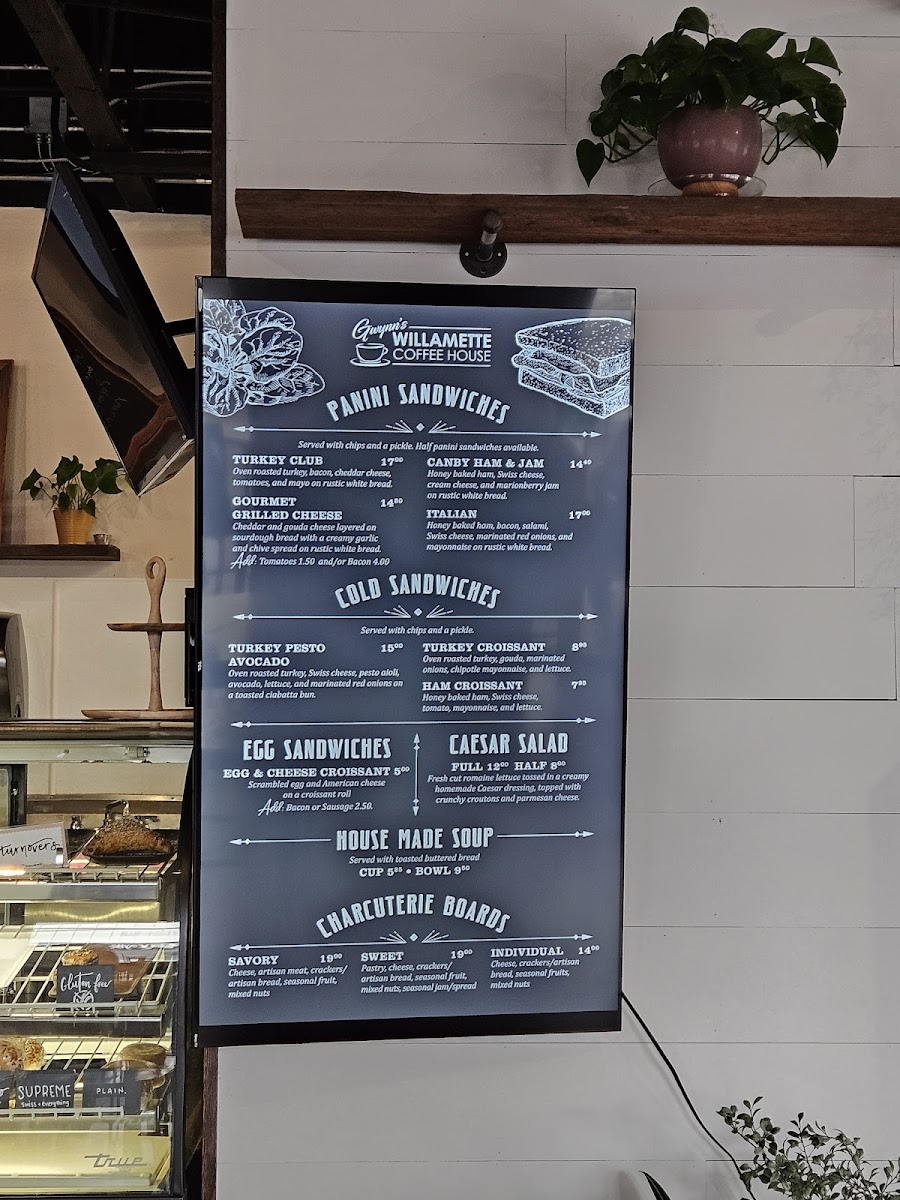 Gwynn's
WILLAMETTE
COFFEE HOUSE
PANINI SANDWICHES
Served with chips and a pickle. Half panini sandwiches available.
TURKEY CLUB 17⁰⁰
Oven roasted turkey, bacon, cheddar cheese,
tomatoes, and mayo on rustic white bread.
GOURMET 14⁵⁰
GRILLED CHEESE
Cheddar and gouda cheese layered on
sourdough bread with a creamy garlic
and chive spread on rustic white bread.
Add: Tomatoes 1.50 and/or Bacon 4.00
CANBY HAM & JAM 14⁴⁰
Honey baked ham, Swiss cheese,
cream cheese, and marionberry jam
on rustic white bread.
ITALIAN 17⁰⁰
Honey baked ham, bacon, salami,
Swiss cheese, marinated red onions, and
mayonnaise on rustic white bread.
COLD SANDWICHES
Served with chips and a pickle.
TURKEY PESTO 15⁰⁰
AVOCADO
Oven roasted turkey, Swiss cheese, pesto aioli,
avocado, lettuce, and marinated red onions on
a toasted ciabatta bun.
TURKEY CROISSANT 8⁹⁵
Oven roasted turkey, gouda, marinated
onions, chipotle mayonnaise, and lettuce.
HAM CROISSANT 7⁹⁵
Honey baked ham, Swiss cheese,
tomato, mayonnaise, and lettuce.
EGG SANDWICHES
EGG & CHEESE CROISSANT 5⁰⁰
Scrambled egg and American cheese
on a croissant roll
Add: Bacon or Sausage 2.50.
CAESAR SALAD
FULL 12⁰⁰ HALF 8⁶⁰
Fresh cut romaine lettuce tossed in a creamy
homemade Caesar dressing, topped with
crunchy croutons and parmesan cheese.
HOUSE MADE SOUP
Served with toasted buttered bread
CUP 5²⁵ • BOWL 9⁵⁰
CHARCUTERIE BOARDS
SAVORY 19⁰⁰
Cheese, artisan meat, crackers/
artisan bread, seasonal fruit,
mixed nuts
SWEET 19⁰⁰
Pastry, cheese, crackers/
artisan bread, seasonal fruit,
mixed nuts, seasonal jam/spread
INDIVIDUAL 14⁰⁰
Cheese, crackers/artisan
bread, seasonal fruits,
mixed nuts
turnovers
Gluten free
SUPREME
Swiss + everything
PLAIN.
true